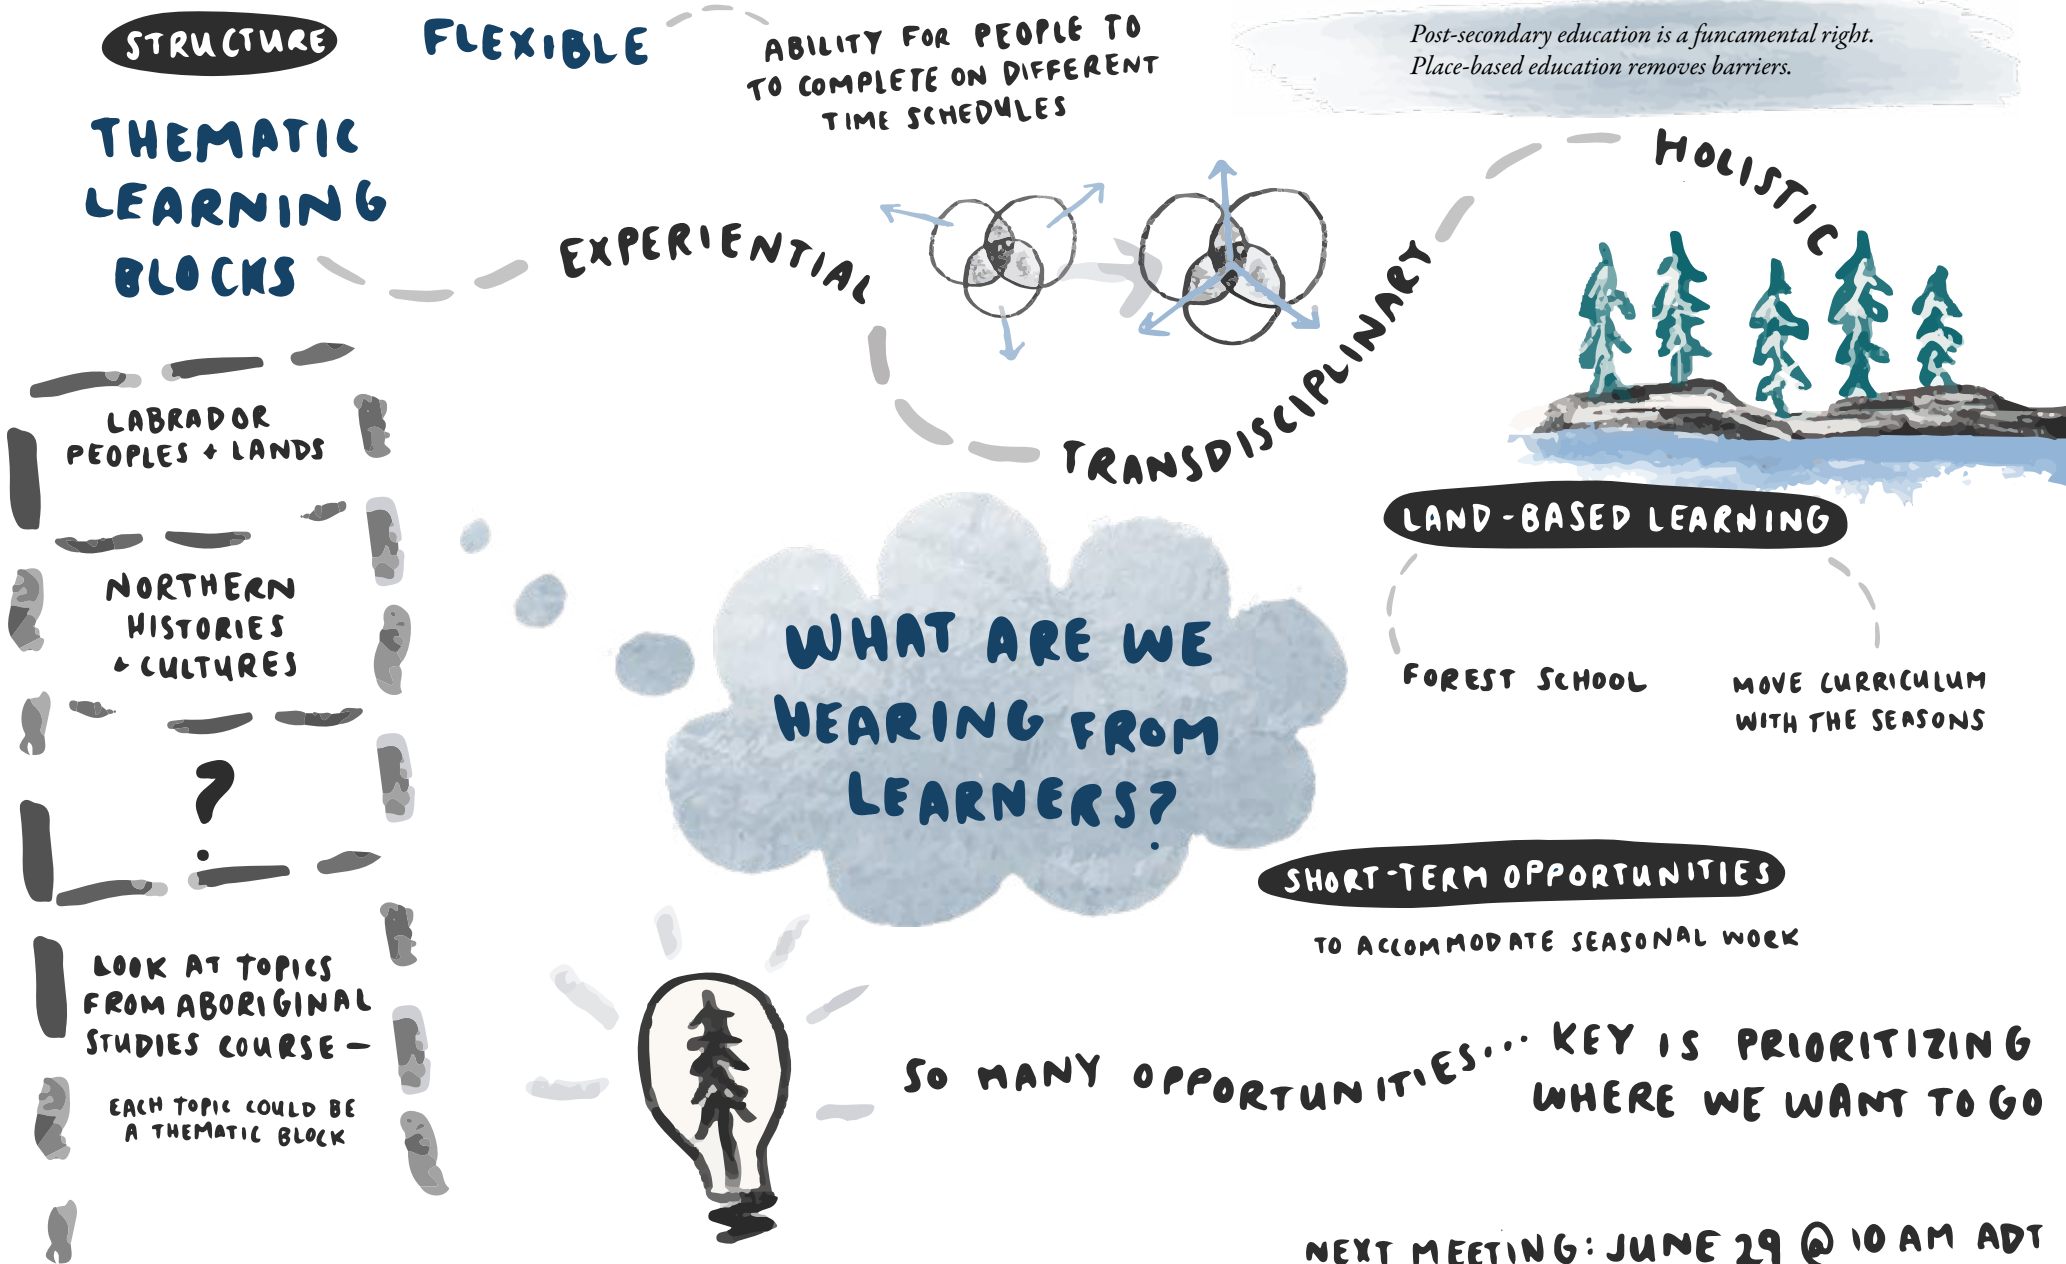 STRUCTURE
THEMATIC
LEARNING
BLOCKS
FLEXIBLE
ABILITY FOR PEOPLE TO
TO COMPLETE ON DIFFERENT
TIME SCHEDULES
Post-secondary education is a funcamental right.
Place-based education removes barriers.
EXPERIENTIAL
TRANSDISCIPLINARY
HOLISTIC
LABRADOR
PEOPLES + LANDS
NORTHERN
HISTORIES
+ CULTURES
?
LOOK AT TOPICS
FROM ABORIGINAL
STUDIES COURSE –
EACH TOPIC COULD BE
A THEMATIC BLOCK
WHAT ARE WE
HEARING FROM
LEARNERS?
LAND-BASED LEARNING
FOREST SCHOOL
MOVE CURRICULUM
WITH THE SEASONS
SHORT-TERM OPPORTUNITIES
TO ACCOMMODATE SEASONAL WORK
SO MANY OPPORTUNITIES... KEY IS PRIORITIZING
WHERE WE WANT TO GO
NEXT MEETING: JUNE 29 @ 10 AM ADT